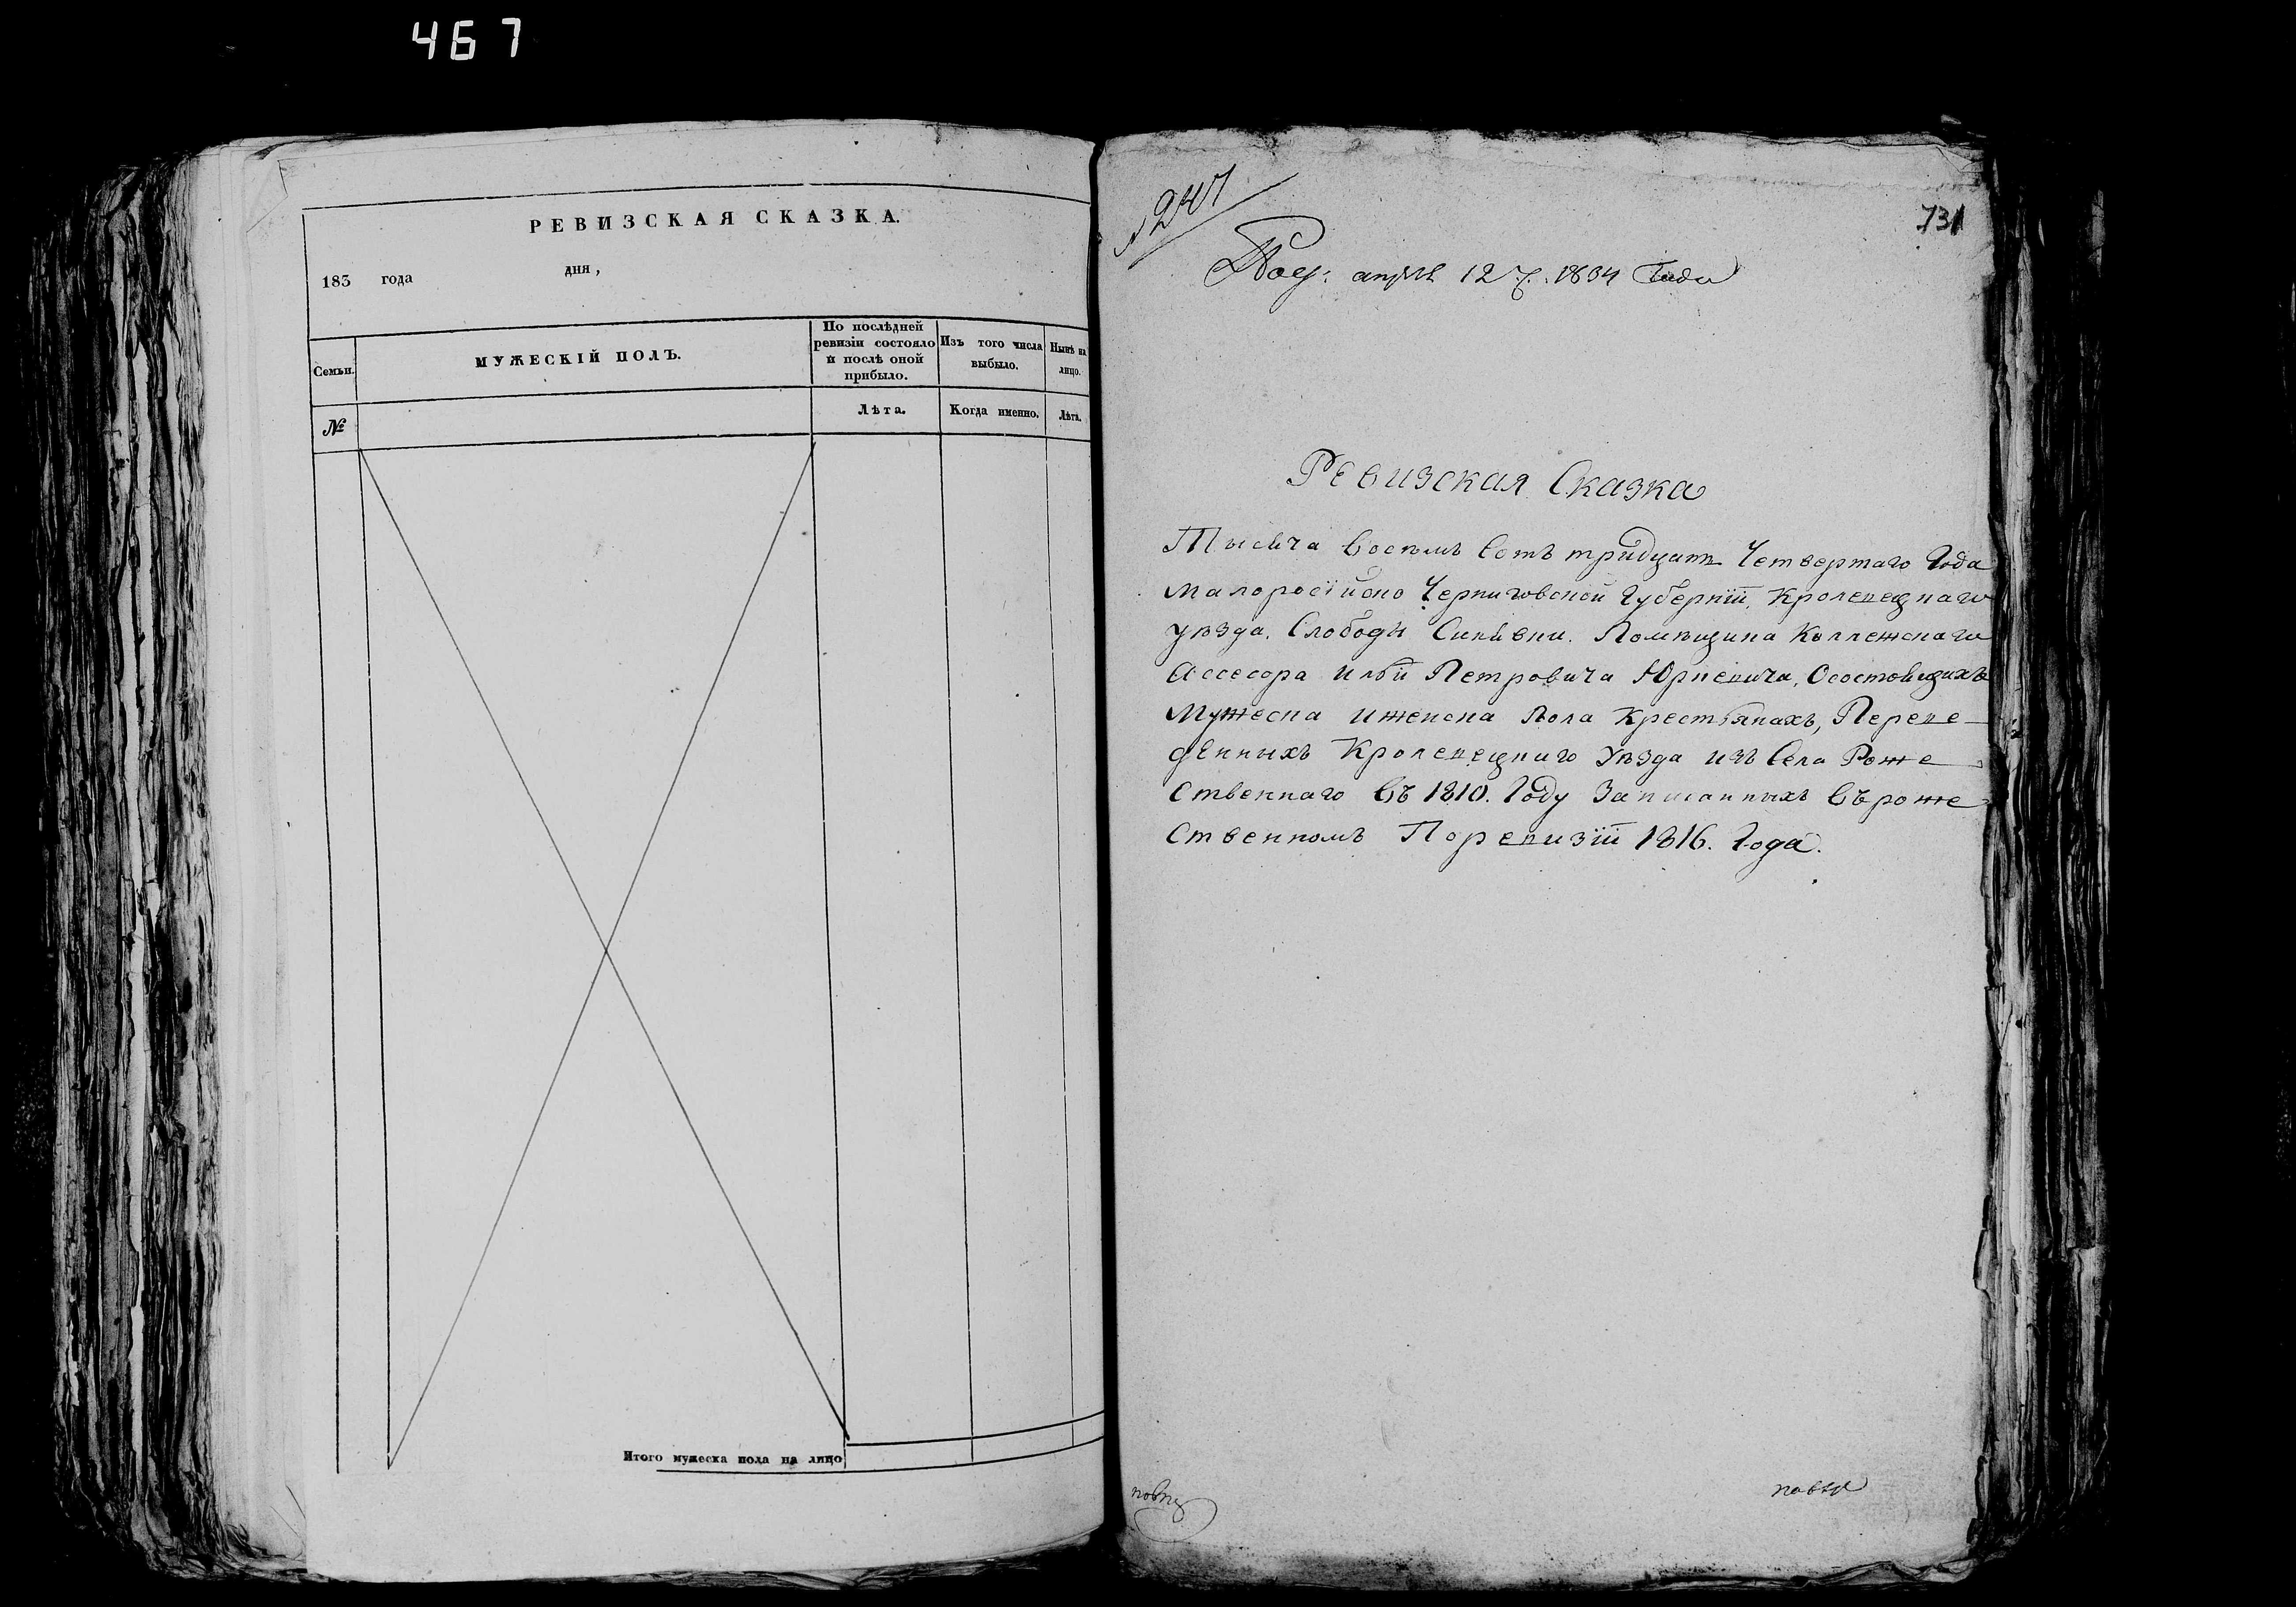 467
РЕВИЗСКАЯ СКАЗКА.
183 года дня,
Семьи.
МУЖЕСКІЙ ПОЛЪ.
По послѣдней ревизіи состояло и послѣ оной прибыло.
Изъ того числа выбыло.
Нынѣ на лицо.
№
Лѣта.
Когда именно.
Лѣта.
Итого мужеска пола на лицо
731
12 1834
Ревизская Сказка
Тысяча восемь сотъ тридцать Четвертаго Года
Малоросійско Черниговской Губерніи, Кролевецкаго
уѣзда. Слободы Помѣщика Коллежскаго
Ассесора Ильи Петровича Юркевича, Осостоящихъ
Мужеска иженска Пола Крестьянахъ, Переве-
денныхъ Кролевецкаго Уѣзда изъ Села Роже
ственнаго въ 1810. Году Записанныхъ въ роже
ственномъ Поревизіи 1816. Года.